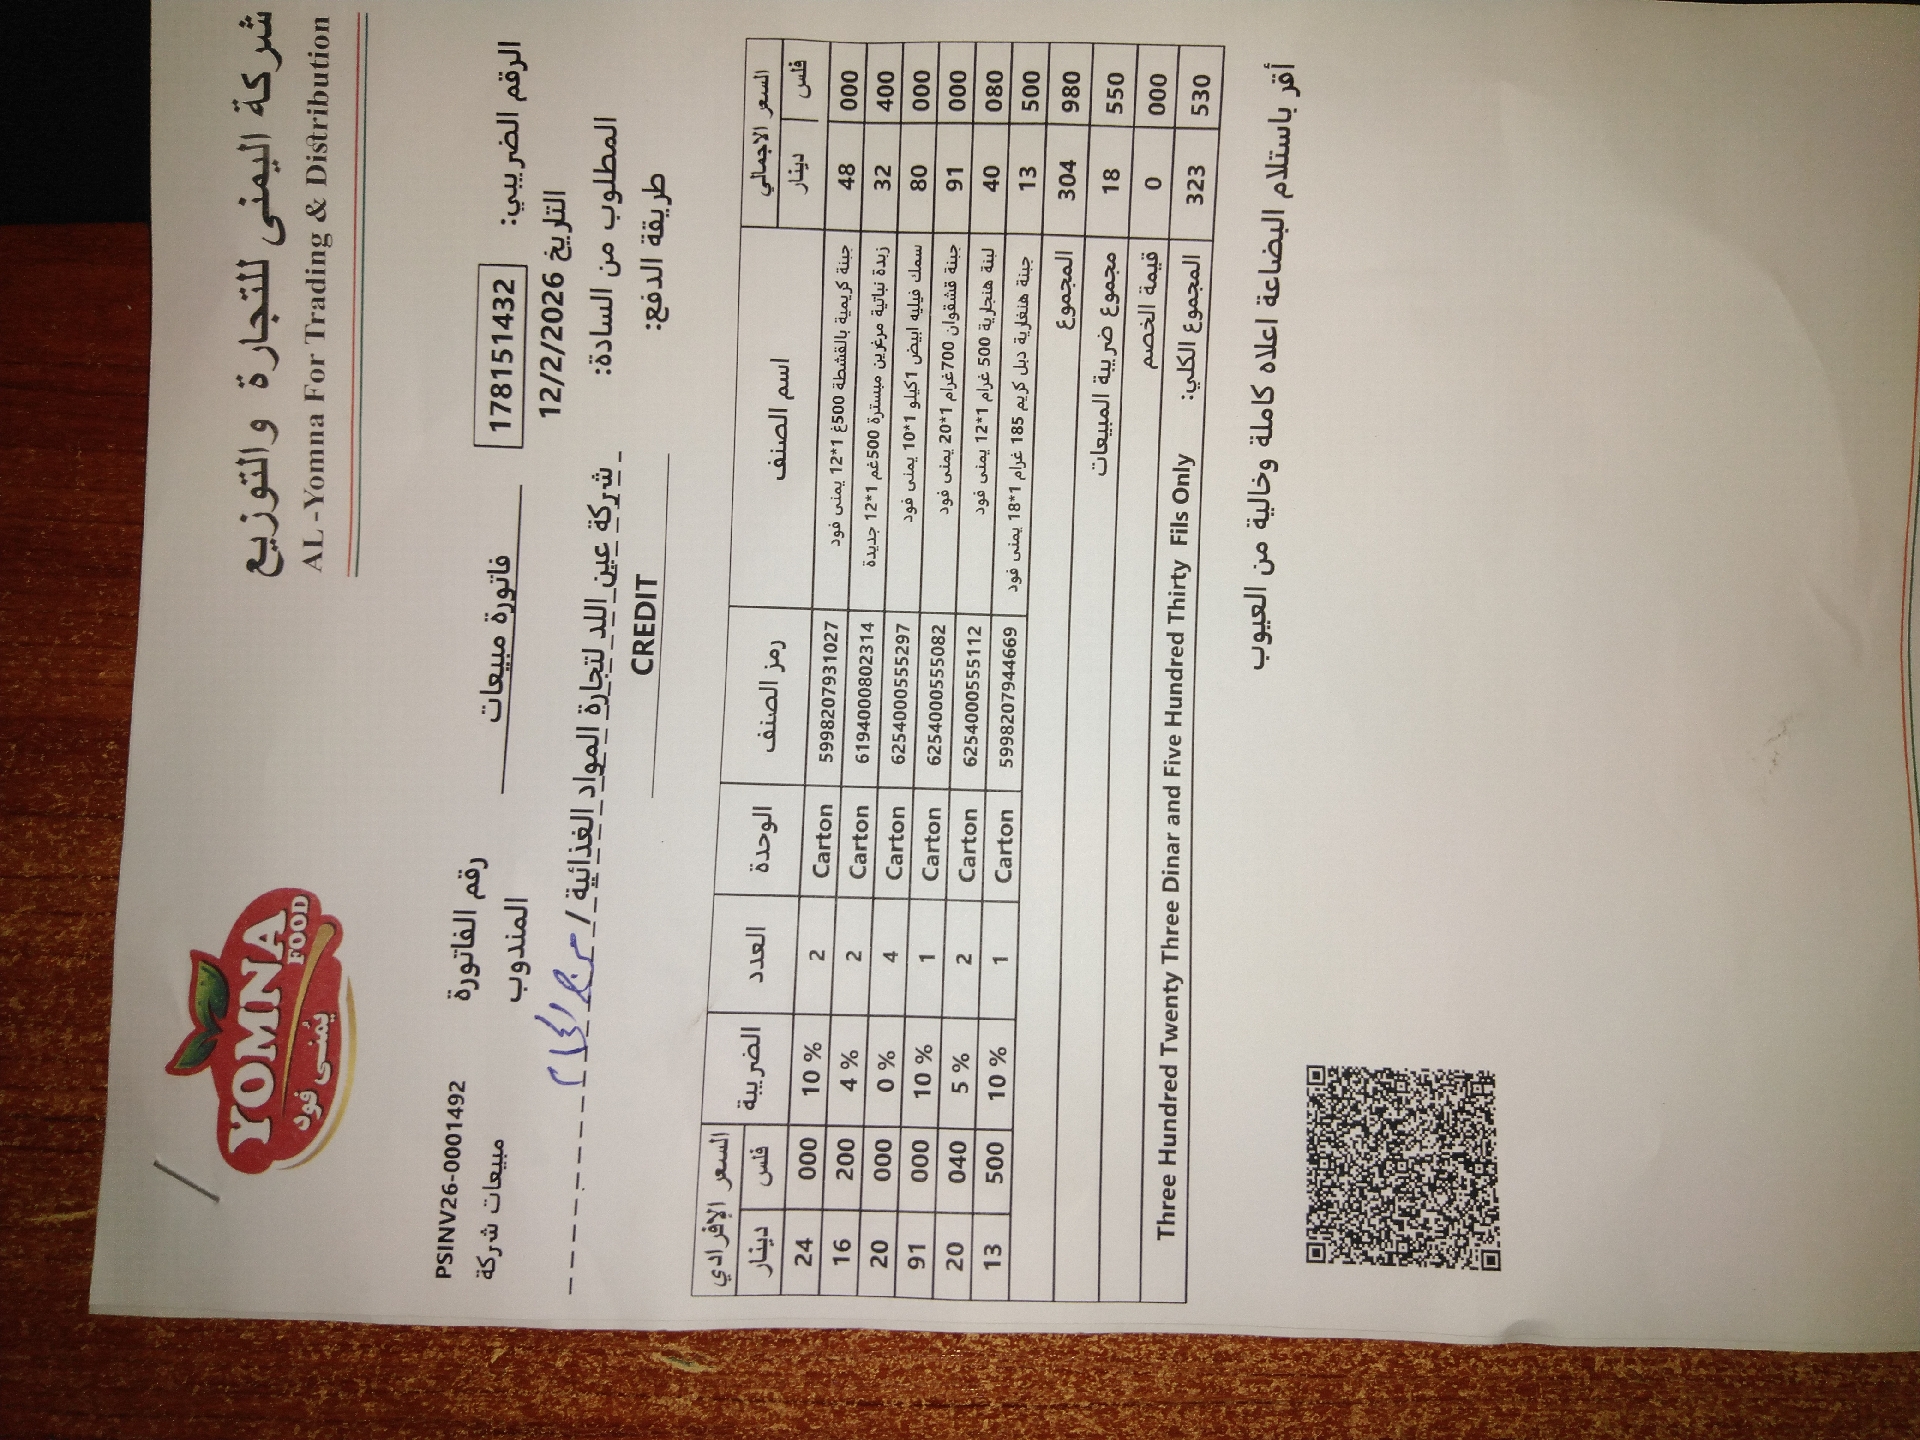 شركة اليمنى للتجارة والتوزيع
AL -Yomna For Trading & Distribution
YOMNA
FOOD
يمنى فود
الرقم الضريبي: 178151432 فاتورة مبيعات رقم الفاتورة PSINV26-0001492
التاريخ 12/2/2026 المندوب مبيعات شركة
المطلوب من السادة: شركة عين اللد لتجارة المواد الغذائية /
طريقة الدفع: CREDIT
السعر الاجمالي اسم الصنف رمز الصنف الوحدة العدد الضريبة السعر الإفرادي
فلس دينار فلس دينار
000 48 جبنة كريمية بالقشطة 500غ 1*12 يمنى فود 5998207931027 Carton 2 10 % 000 24
400 32 زبدة نباتية مرغرين مبسترة 500غم 1*12 جديدة 6194000802314 Carton 2 4 % 200 16
000 80 سمك فيليه ابيض 1كيلو 1*10 يمنى فود 6254000555297 Carton 4 0 % 000 20
000 91 جبنة قشقوان 700غرام 1*20 يمنى فود 6254000555082 Carton 1 10 % 000 91
080 40 لبنة هنجارية 500 غرام 1*12 يمنى فود 6254000555112 Carton 2 5 % 040 20
500 13 جبنة هنغارية دبل كريم 185 غرام 1*18 يمنى فود 5998207944669 Carton 1 10 % 500 13
980 304 المجموع
550 18 مجموع ضريبة المبيعات
000 0 قيمة الخصم
530 323 المجموع الكلي: Three Hundred Twenty Three Dinar and Five Hundred Thirty Fils Only
أقر باستلام البضاعة اعلاه كاملة وخالية من العيوب